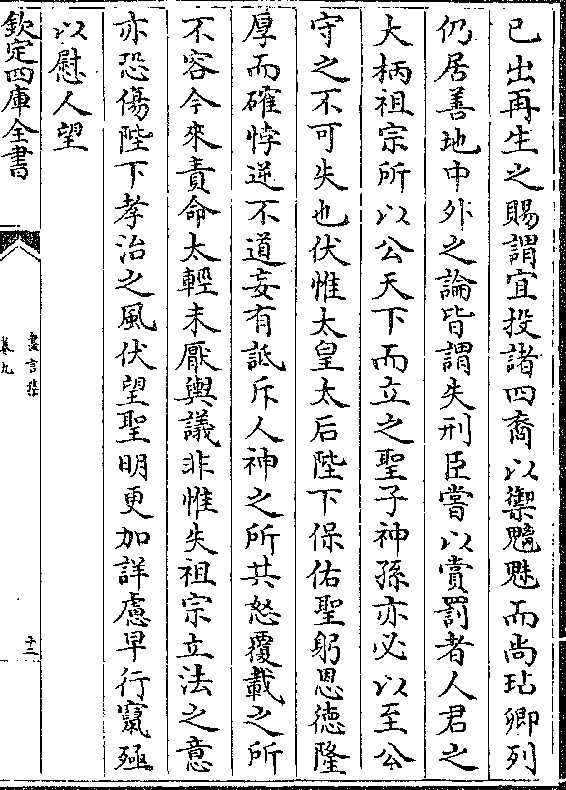 已出再生之賜謂宜投諸四裔以禦魑魅而尚玷卿列
仍居善地中外之論皆謂失刑臣嘗以賞罰者人君之
大柄祖宗所以公天下而立之聖子神孫亦必以至公
守之不可失也伏惟太皇太后陛下保佑聖躬恩徳隆
厚而確悖逆不道妄有詆斥人神之所共怒覆載之所
不容今來責命太輕未厭輿議非惟失祖宗立法之意
亦恐傷陛下孝治之風伏望聖明更加詳慮早行竄殛
以慰人望
欽定四庫全書
盡言集
卷九
十三